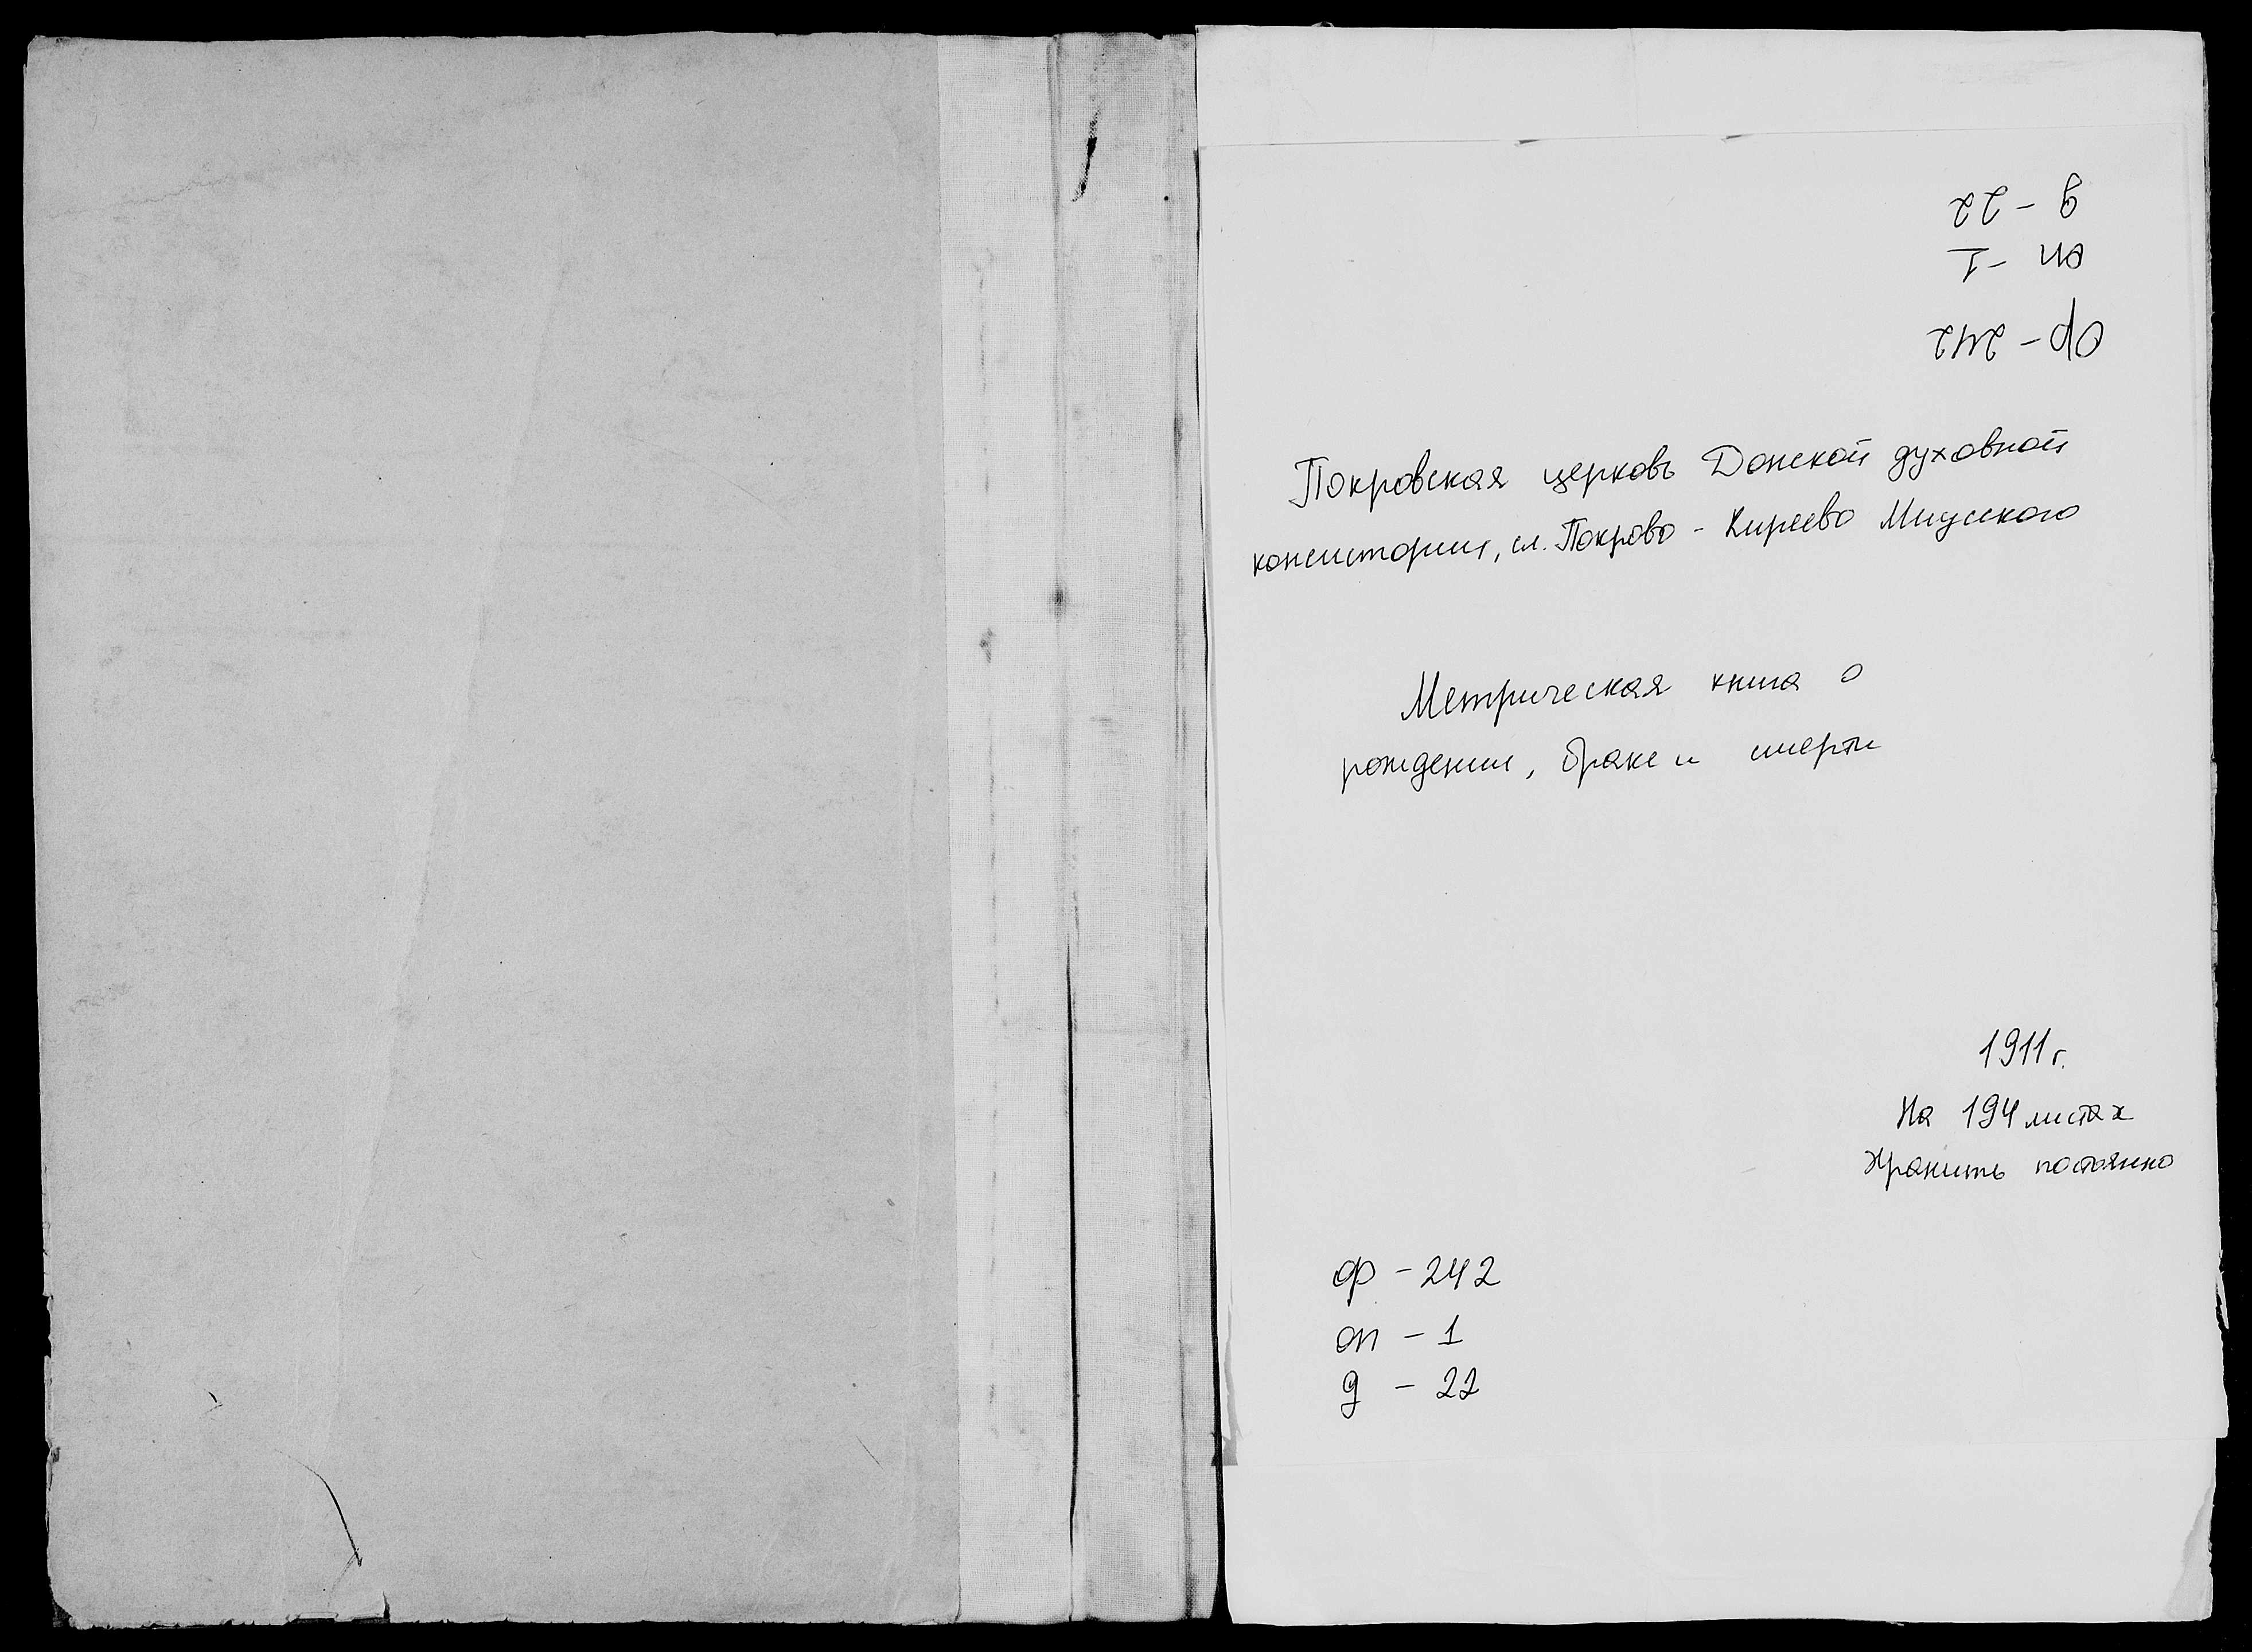 д - 22
оп - 1
ф - 242
Покровская церковь Донской духовной
консистории, сл. Покрово - Киреево Миусского
Метрическая книга о
рождении, браке и смерти
1911 г.
На 194 листах
Хранить постоянно
ф - 242
оп - 1
д - 22